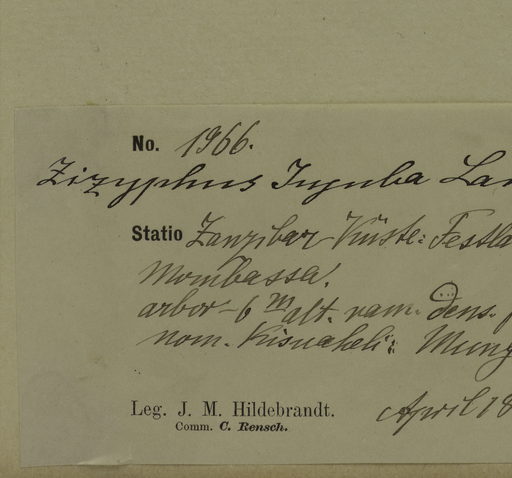 No. 1966.
Zizyphus Jujuba Lam
Statio Zanzibar-Küste: Festla
Mombassa.
arbor - 6 m alt. ram. dens.
nom. Kisuaheli: Mung
Leg. J. M. Hildebrandt.
Comm. C. Rensch.
April 18